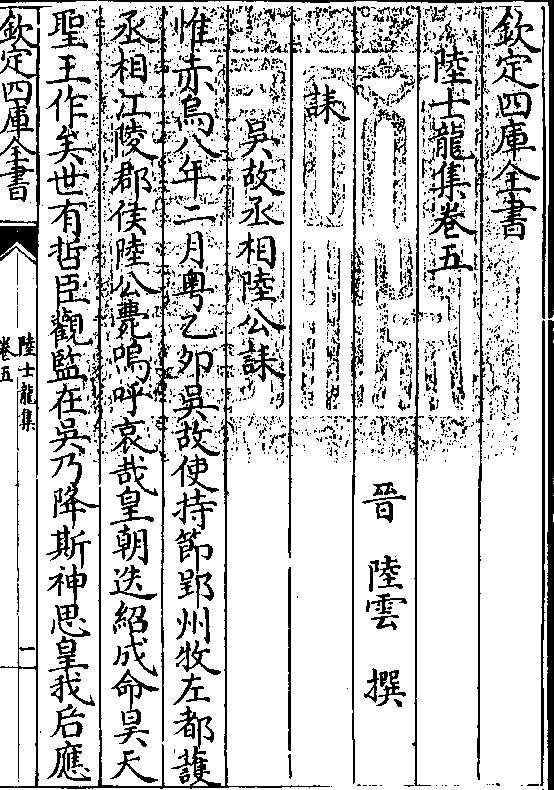 欽定四庫全書
陸士龍集卷五
晉 陸雲 撰
誄
吳故丞相陸公誄
惟赤烏八年二月粤乙夘吳故使持節郢州牧左都護
丞相江陵郡侯陸公薨嗚呼哀哉皇朝迭紹成命昊天
聖王作矣世有哲臣觀監在吳乃降斯神思皇我后應
欽定四庫全書
陸士龍集
卷五
一